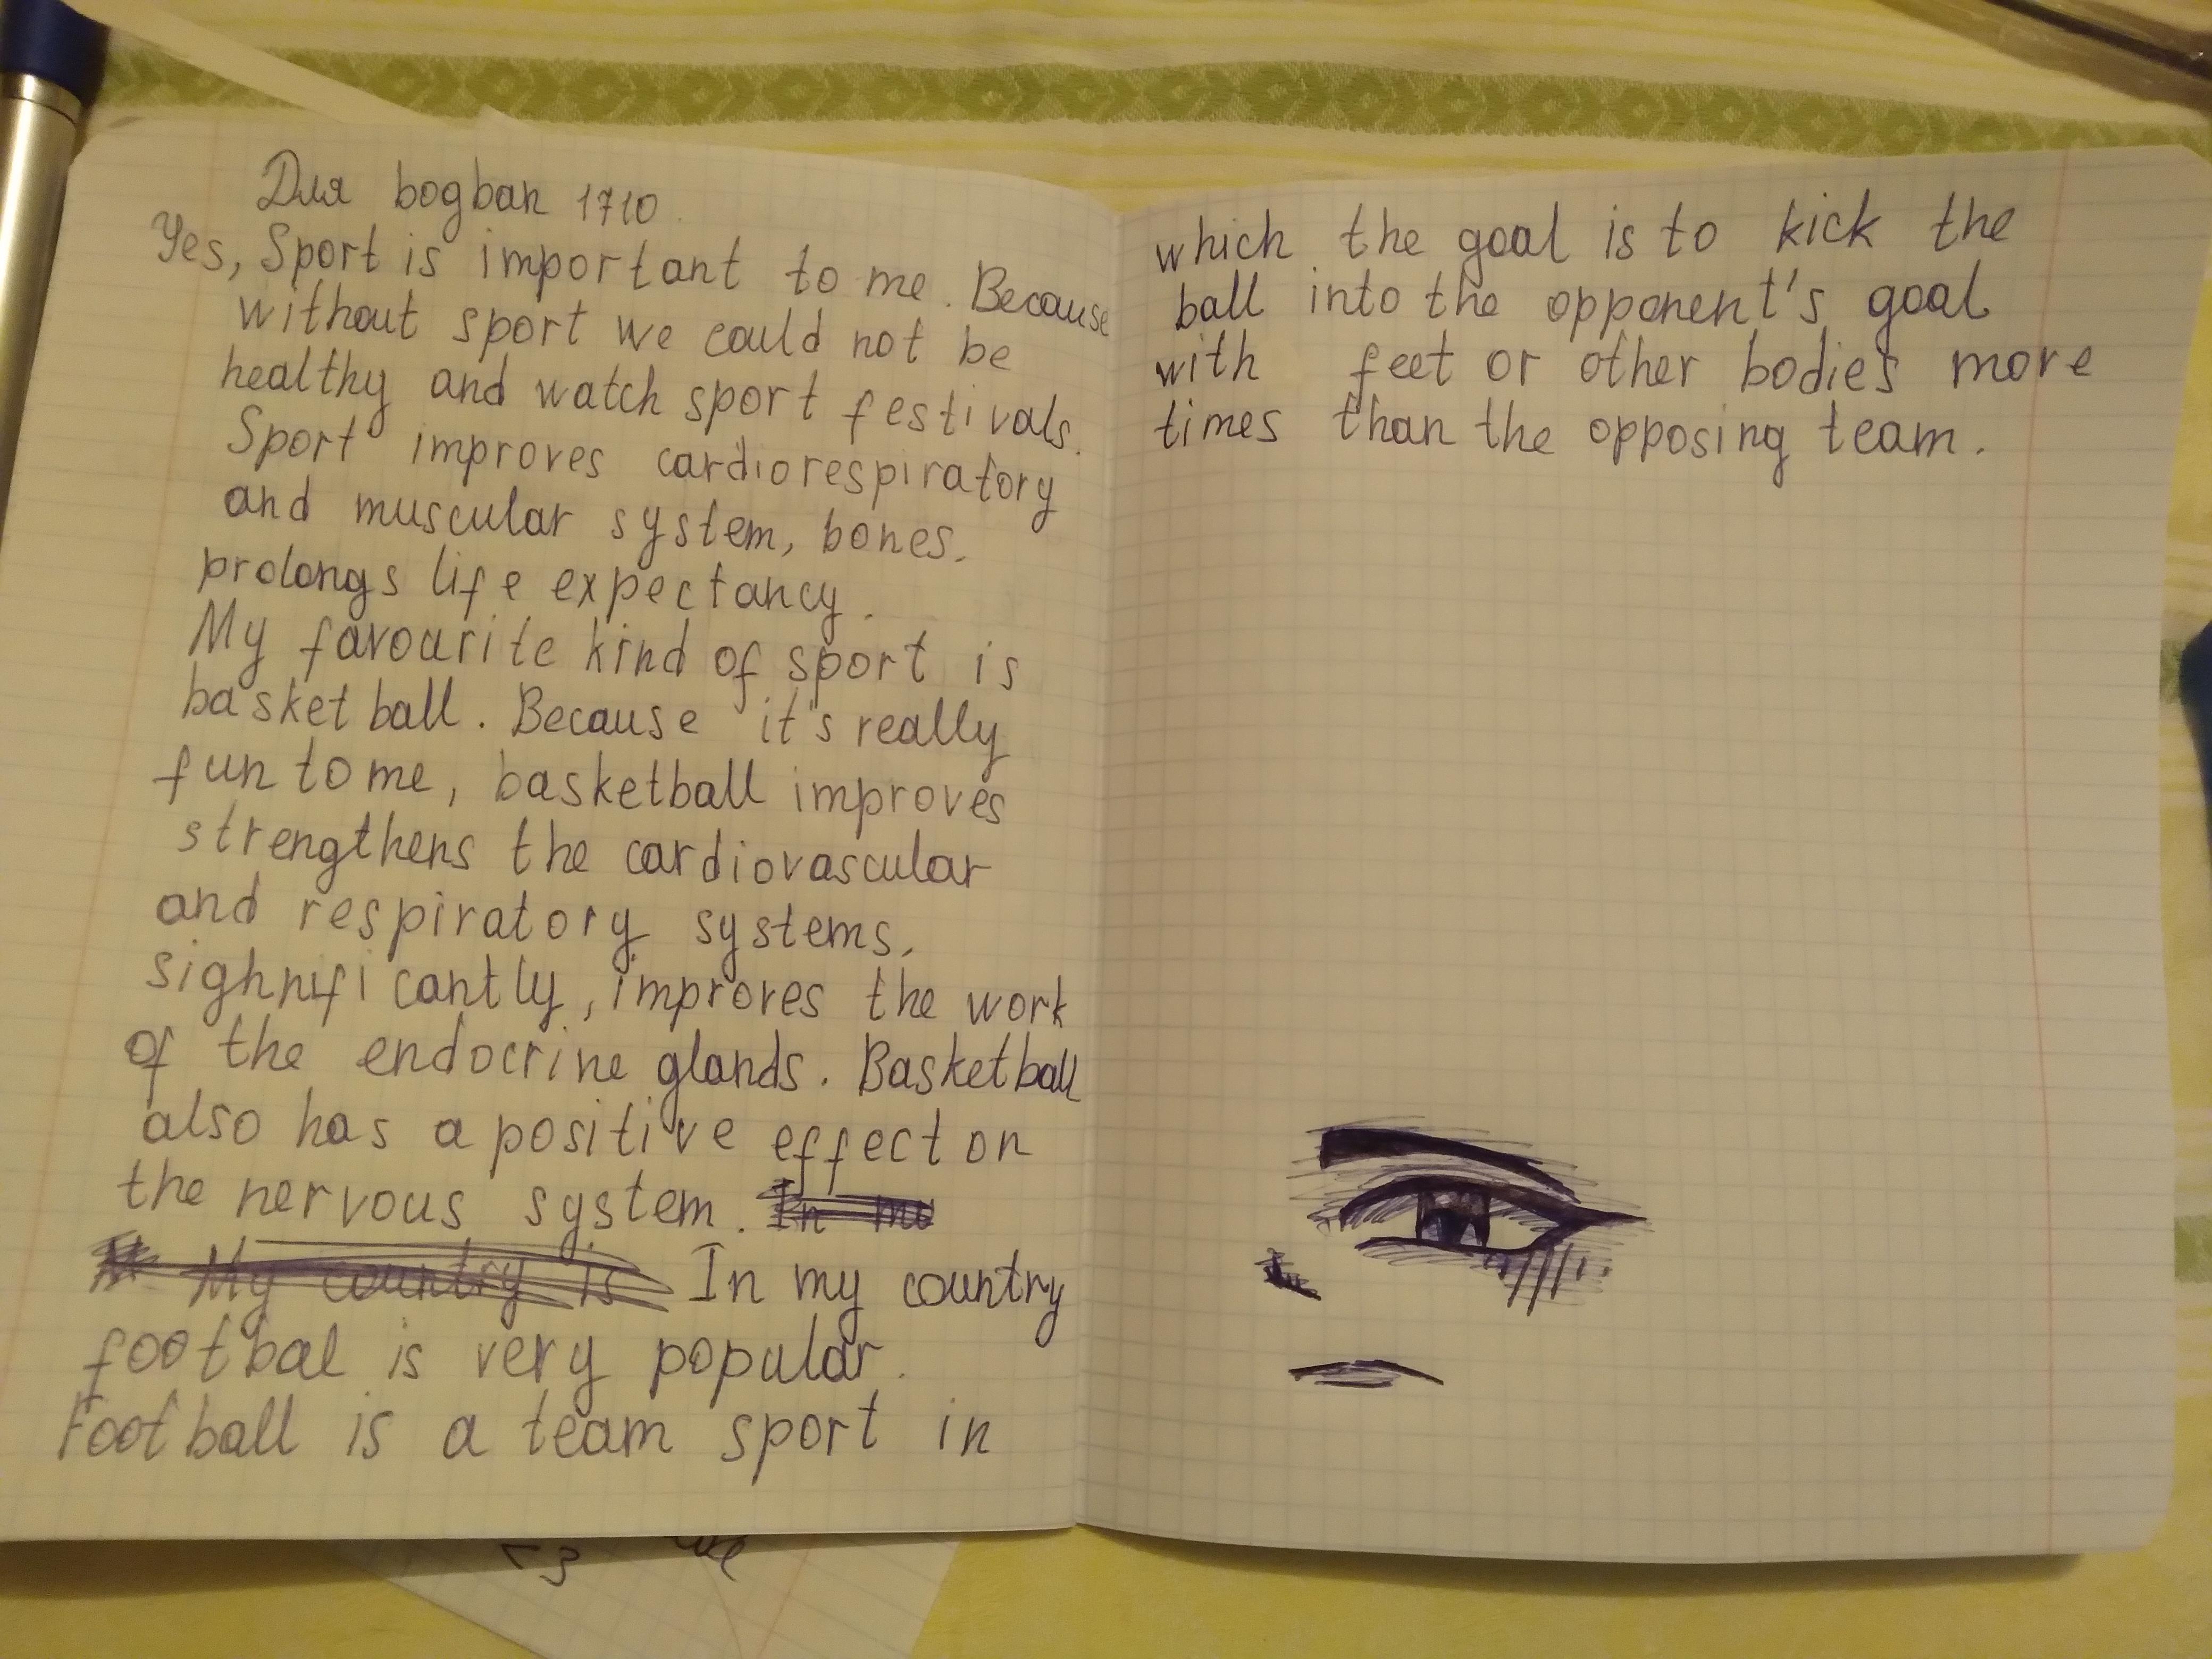 Для bogban 1710.
Yes, Sport is important to me. Because
without sport we could not be
healthy and watch sport festivals.
Sport improves cardiorespiratory
and muscular system, bones,
prolongs life expectancy.
My favourite kind of sport is
basketball. Because it's really
fun to me, basketball improves
strengthens the cardiovascular
and respiratory systems,
sighnificantly, improves the work
of the endocrine glands. Basketball
also has a positive effect on
the nervous system. In my
My country is In my country
footbal is very popular.
Football is a team sport in
which the goal is to kick the
ball into the opponent's goal
with feet or other bodies more
times than the opposing team.